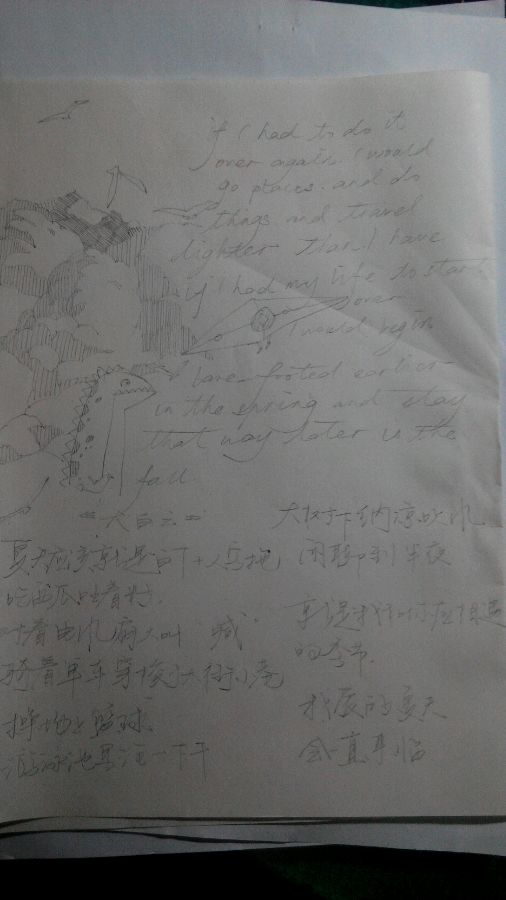 if I had to do it
over again. I would
go places. and do
things. and travel
lighter than I have
if I had my life to start
over
I would begin
bare-footed earlier
in the spring and stay
that way later in the
fall.
"大白云"
夏天应该就是
吃西瓜吐着籽.
对着电风扇大叫 喊
骑着单车穿梭大街小巷
游泳池里泡一下午
大树下纳凉吹风
闲聊到半夜
的季节.
我的夏天
会一直